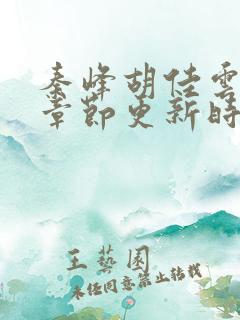 秦峰胡佳雲
章節更新時
王藝園
未经同意禁止转载